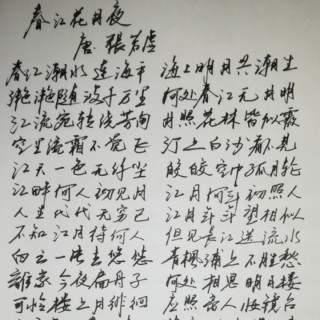 春江花月夜
唐 張若虛
春江潮水連海平 海上明月共潮生
灔灔隨波千万里 何处春江无月明
江流宛转绕芳甸 月照花林皆似霰
空里流霜不觉飞 汀上白沙看不见
江天一色无纤尘 皎皎空中孤月轮
江畔何人初见月 江月何年初照人
人生代代无穷已 江月年年望相似
不知江月待何人 但见长江送流水
白云一片去悠悠 青枫浦上不胜愁
谁家今夜扁舟子 何处相思明月楼
可怜楼上月徘徊 应照离人妆镜台